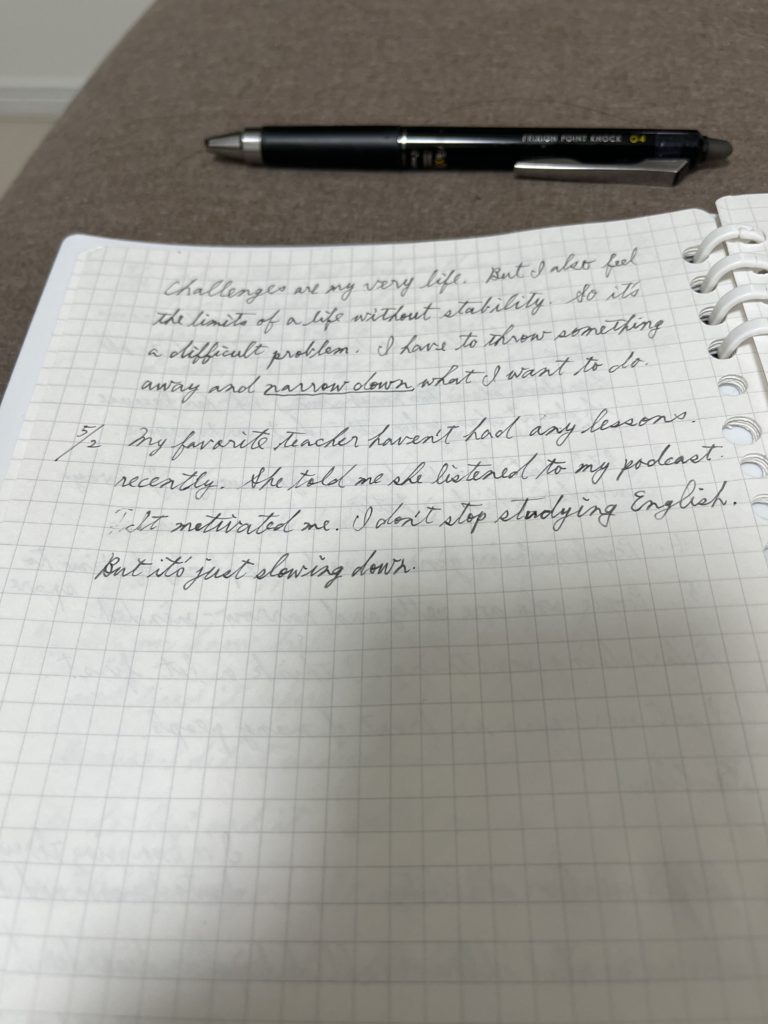 FRIXION POINT KNOCK 04
Challenges are my very life. But I also feel
the limits of a life without stability. So it's
a difficult problem. I have to throw something
away and narrow down what I want to do.
5/2 My favorite teacher haven't had any lessons.
recently. She told me she listened to my podcast.
It motivated me. I don't stop studying English.
But it's just slowing down.